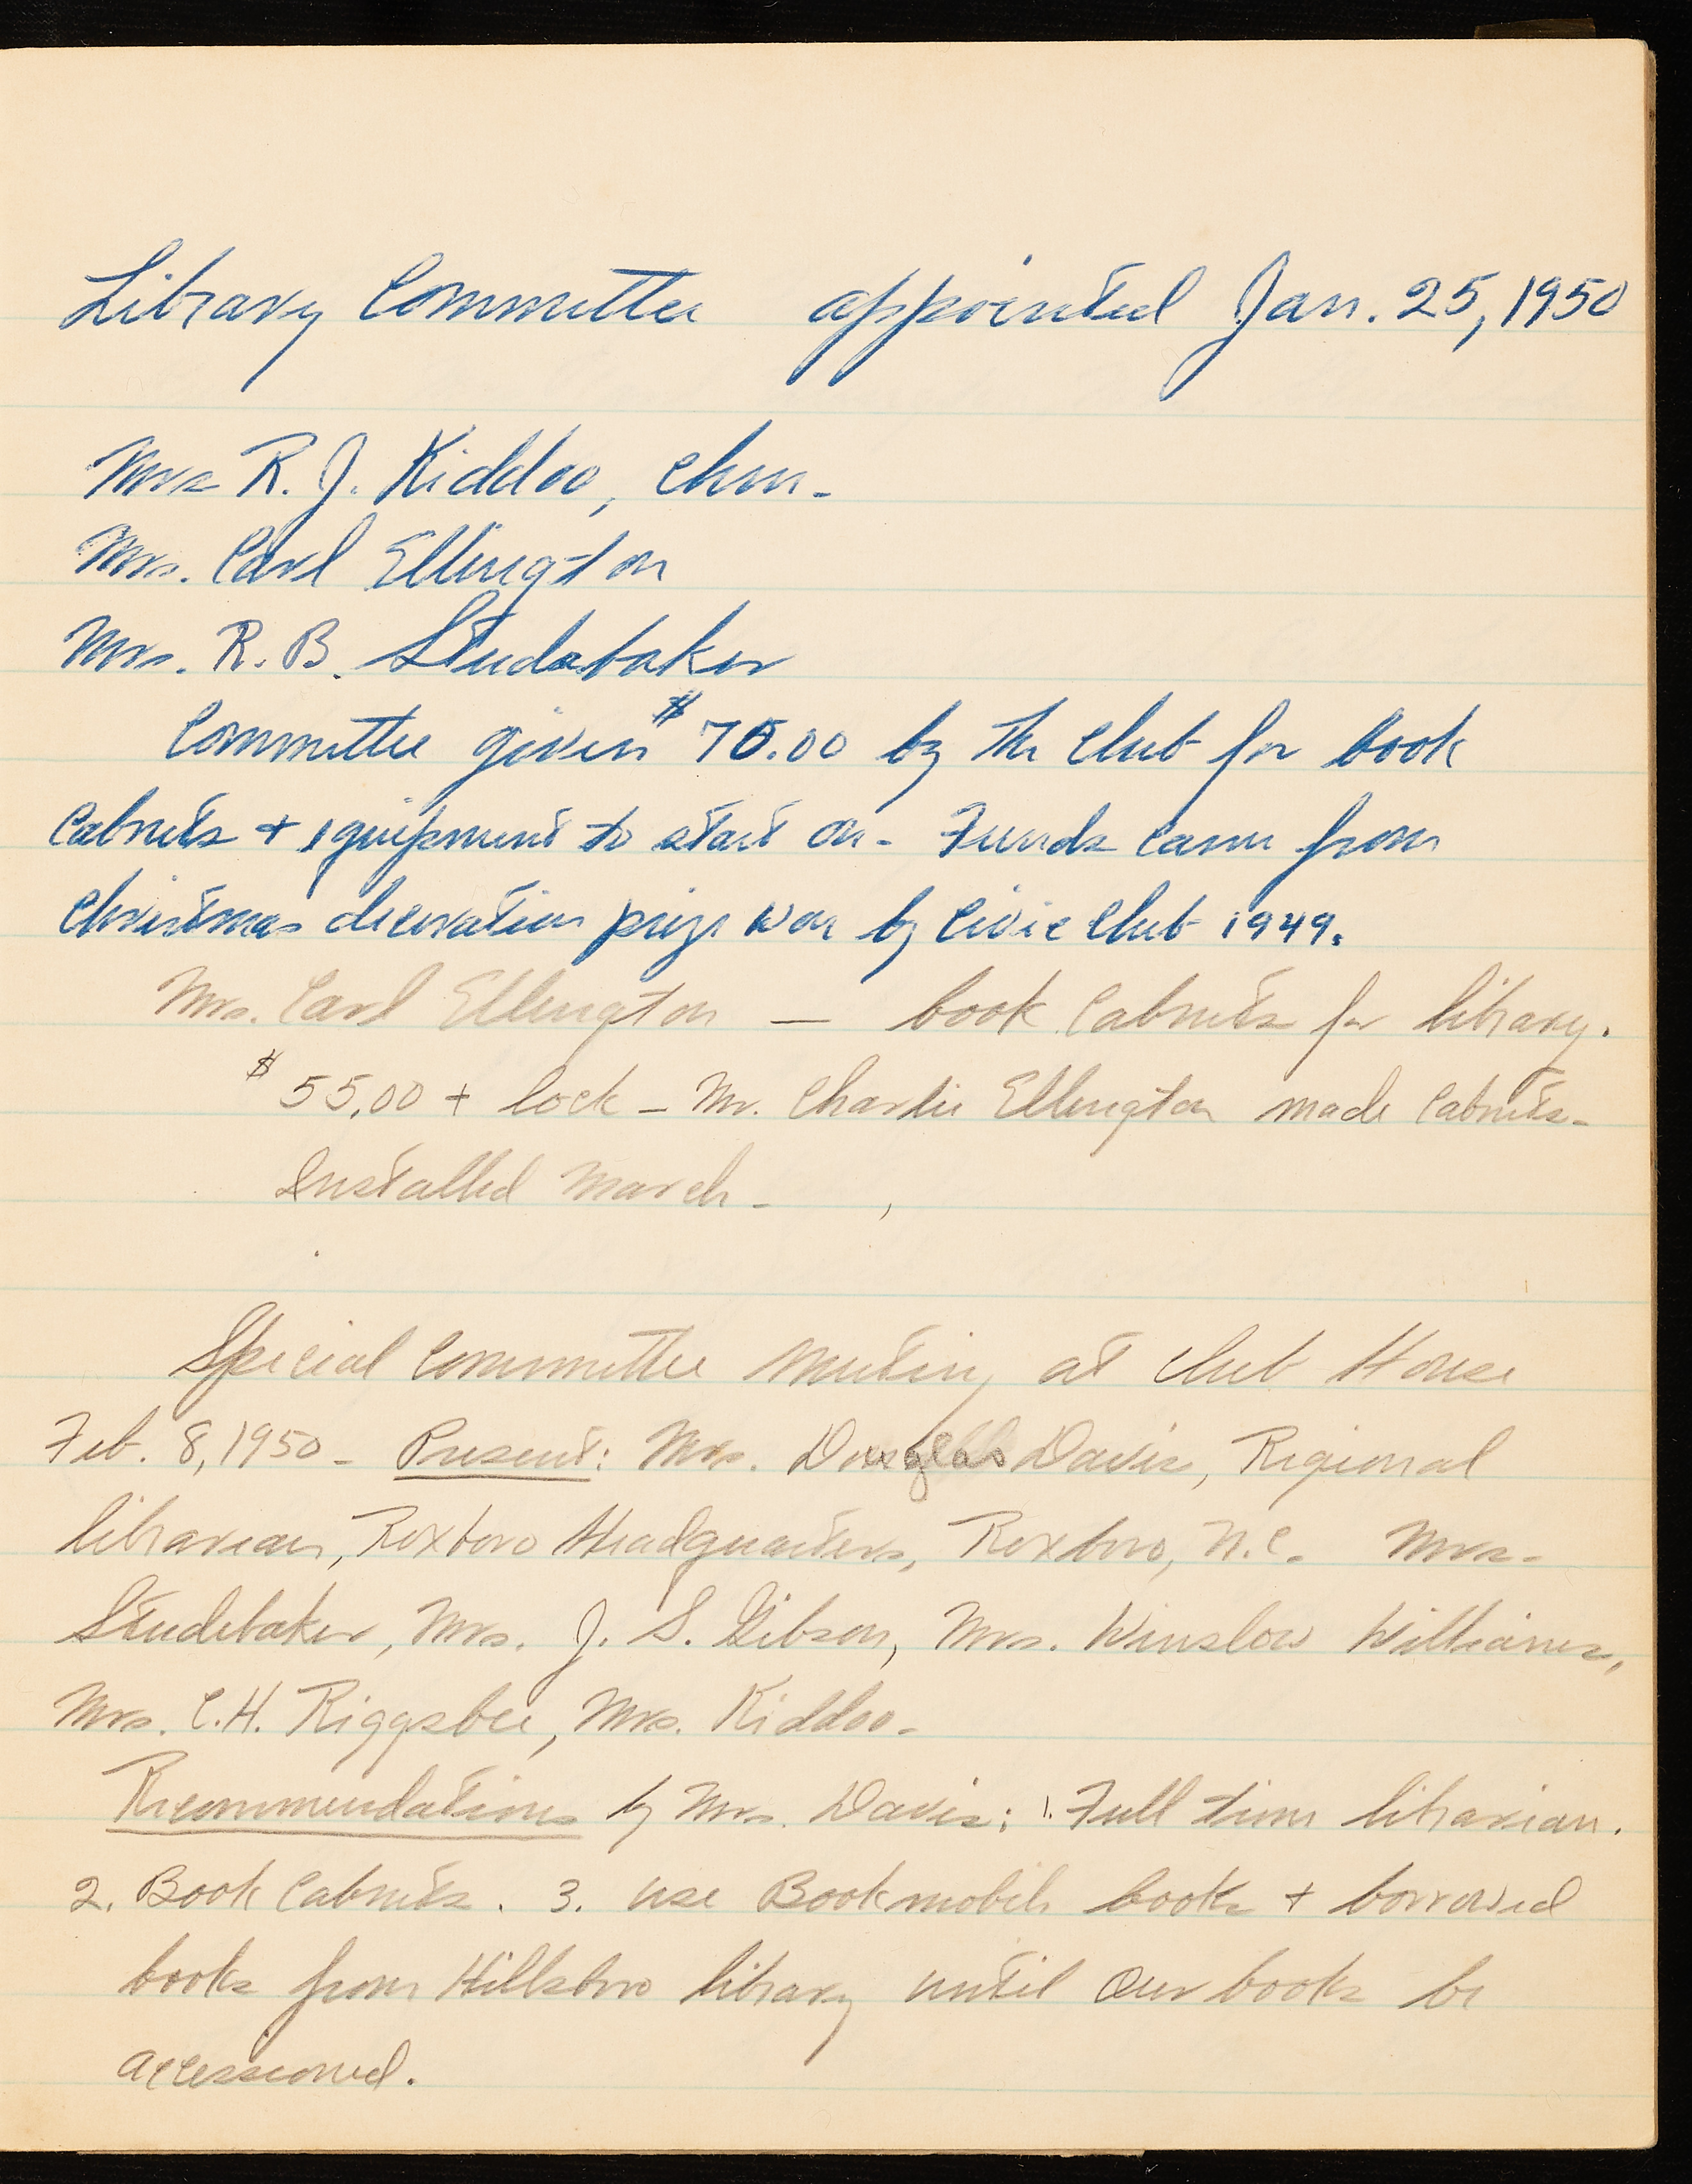 Library Committee appointed Jan. 25, 1950
Mrs R. J. Kiddoo, Chm.
Mrs. Carl Ellington
Mrs. R. B. Studebaker
Committee given $70.00 by the Club for book
Cabnets + equipment to start on - Funds came from
Christmas decoration prize won by Civic Club 1949.
Mrs. Carl Ellington — book Cabnets for library.
$55.00 + lock - Mr. Charlie Ellington made Cabnets -
Installed March -
Special Committee Meeting at Club House
Feb. 8, 1950 - Present: Mrs. Douglas Davis, Regional
librarian, Roxboro Headquarters, Roxboro, N.C. Mrs.
Studebaker, Mrs. J. S. Gibson, Mrs. Winslow Williams,
Mrs. C. H. Riggsbee, Mrs. Kiddoo -
Recommendations by Mrs. Davis: 1. Full time librarian.
2. Book Cabnets. 3. use Bookmobile books + borrowed
books from Hillsboro library until our books be
accessioned.